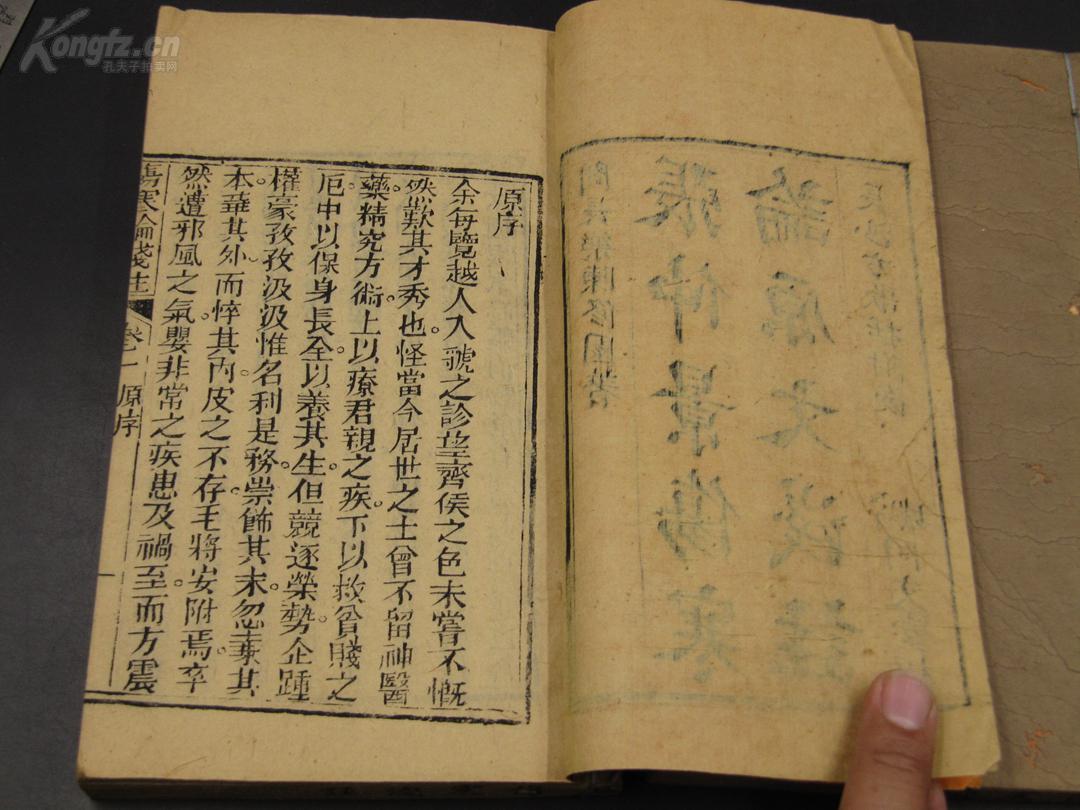 閩長樂陳修園著
張仲景傷寒
論原文淺註
原序
余每覽越人入虢之診望齊侯之色未嘗不慨
然歎其才秀也。怪當今居世之士曾不留神醫
藥。精究方術。上以療君親之疾。下以救貧賤之
厄。中以保身長全。以養其生。但競逐榮勢。企踵
權豪。孜孜汲汲惟名利是務。崇飾其末。忽棄其
本。華其外。而悴其內。皮之不存。毛將安附焉。卒
然遭邪風之氣。嬰非常之疾。患及禍至。而方震
傷寒論淺註 卷一 原序
一
Kongfz.cn
孔夫子拍卖网